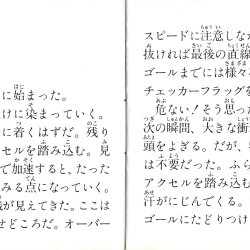 に始まった。
けに染まっていく。
に着くはずだ。残り
セルを踏み込む。見
で加速すると、たった
みる点になっていく。
が見えてきた。ここは
せどころだ。オーバー
スピードに注意しな
抜ければ最後の直線
ゴールまでには様々
チェッカーフラッグを
危ない！そう思っ
次の瞬間、大きな衝
頭をよぎる。だが、
は不要だった。ふら
アクセルを踏み込
汗がにじんでくる。
ゴールにたどりつ